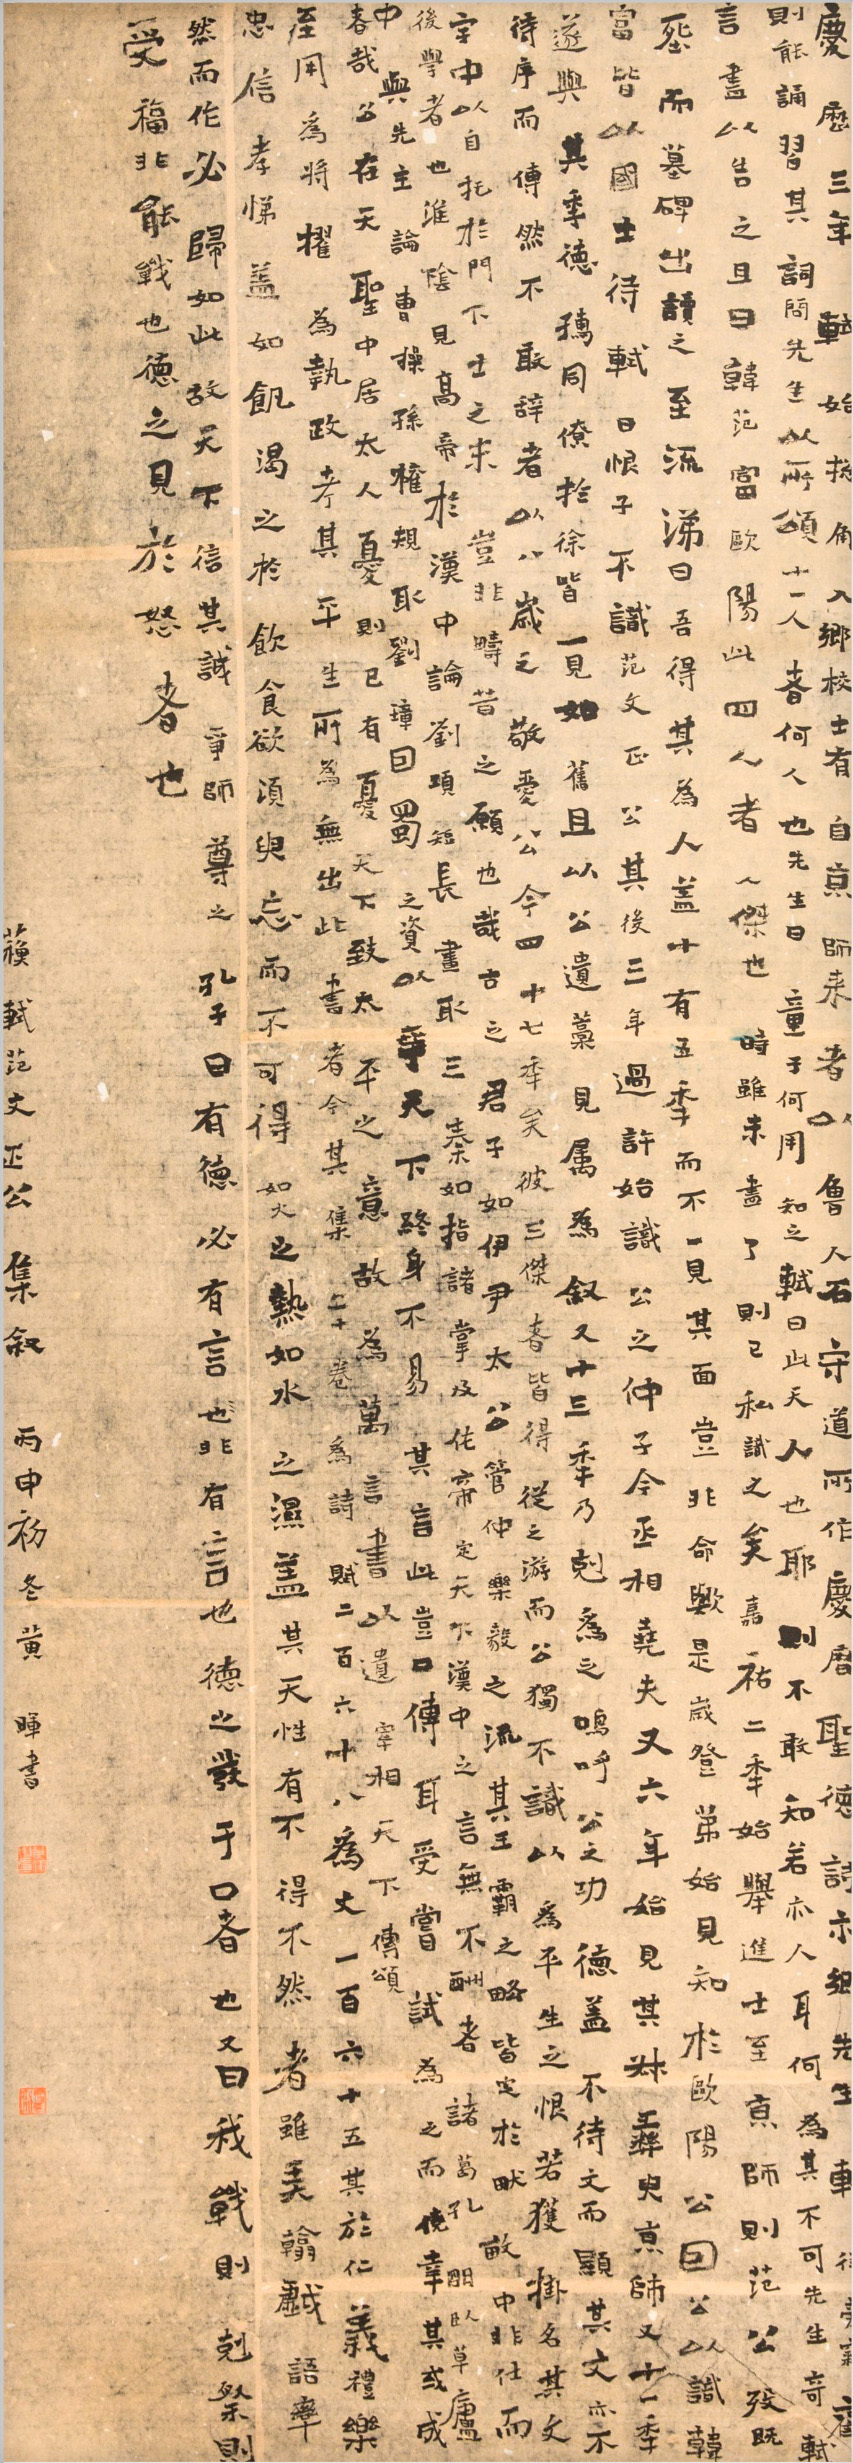 慶歷三年軾始捴角入鄉校士有自京師来者以魯人石守道所作慶曆聖德詩示鄉先生軾從旁竊觀
則能誦習其詞問先生以所頌十一人者何人也先生曰童子何用知之軾曰此天人也耶則不敢知若亦人耳何為其不可先生奇軾
言盡以告之且曰韓范富歐陽此四人者人傑也時雖未盡了則已私識之矣嘉祐二秊始舉進士至京師則范公歿既
塟而墓碑出讀之至流涕曰吾得其為人盖十有五秊而不一見其面豈非命歟是歲登弟始見知於歐陽公因公以識韓
富皆以國士待軾曰恨子不識范文正公其後三年過許始識公之仲子今丞相堯夫又六年始見其叔彞叟京師又十一秊
遂與其季德孺同僚於徐皆一見如舊且以公遺藁見属為叙又十三秊乃剋為之嗚呼公之功德盖不待文而顯其文亦不
待序而傳然不敢辞者以八歲之敬愛公今四十七秊矣彼三傑者皆得從之游而公獨不識以為平生之恨若獲掛名其文
字中以自托於門下士之末豈非疇昔之願也哉古之君子如伊尹太公管仲樂毅之流其王霸之略皆定於畎畝中非仕而
後學者也淮陰見高帝於漢中論劉項短長畫取三秦如指諸掌及佐帝定天下漢中之言無不酬者諸葛孔明臥草廬
中與先主論曹操孫權規取劉璋因蜀之資以爭天下終身不易其言此豈口傳耳受嘗試為之而僥幸其或成
者哉公在天聖中居太人憂則已有憂天下致太平之意故為萬言書以遺宰相天下傳頌
至用為将擢為執政考其平生所為無出此書者今其集二十卷為詩賦二百六十八為文一百六十五其於仁義禮樂
忠信孝悌盖如飢渴之於飲食欲須臾忘而不可得如火之熱如水之濕盖其天性有不得不然者雖弄翰戲語率
然而作必歸如此故天下信其誠爭師尊之孔子曰有德必有言也非有言也德之發于口者也又曰我戰則剋祭則
受福非能戰也德之見於怒者也
蘇軾范文正公集叙丙申初冬黄暉書